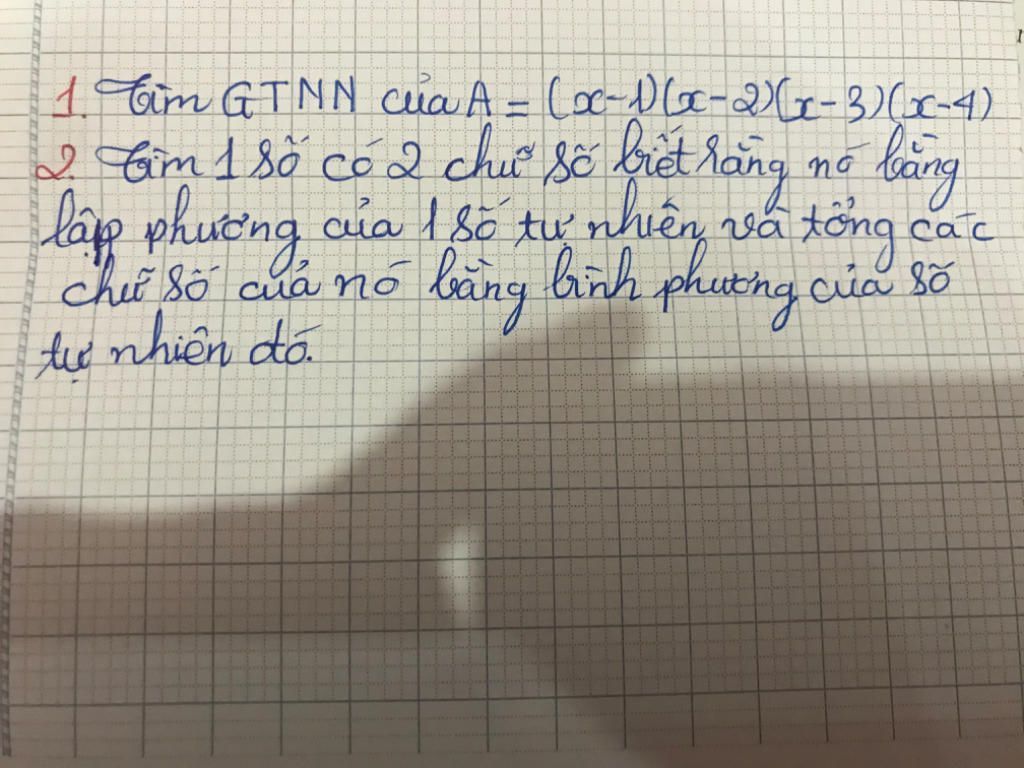 1. Tìm GTNN của A = (x-1)(x-2)(x-3)(x-4)
2. Tìm 1 số có 2 chữ số biết rằng nó bằng
lập phương của 1 số tự nhiên và tổng các
chữ số của nó bằng bình phương của số
tự nhiên đó.